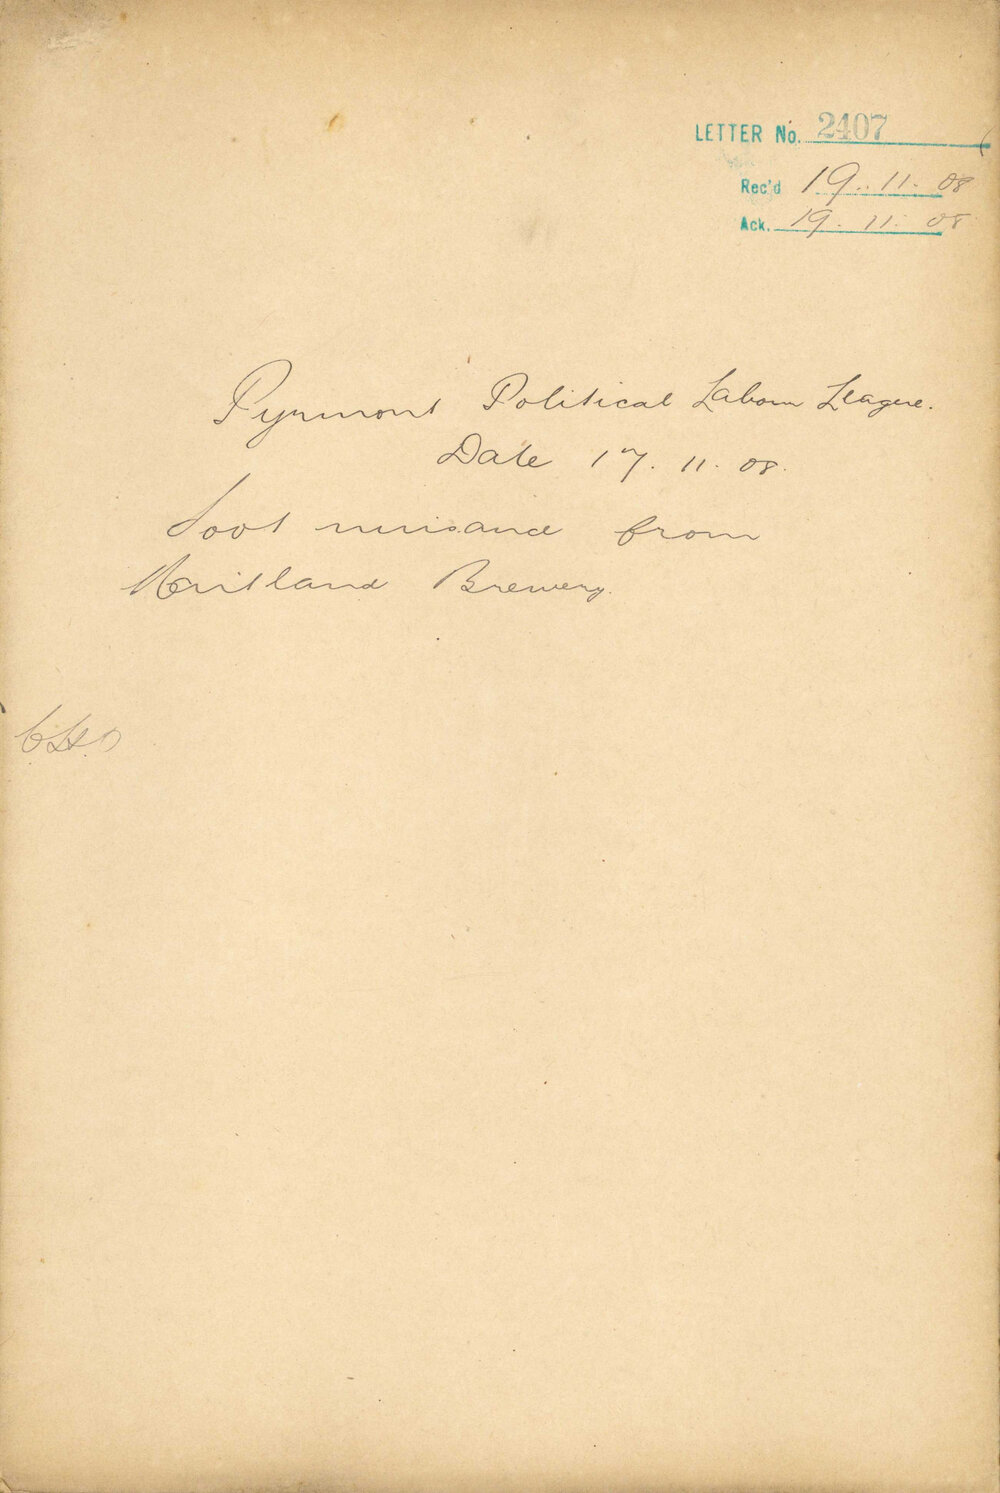 LETTER No. 2407
Rec'd 19. 11. 08
Ack. 19. 11. 08
Pyrmont Political Labour League.
Date 17. 11. 08.
Soot nuisance from
Maitland Brewery.
CHO